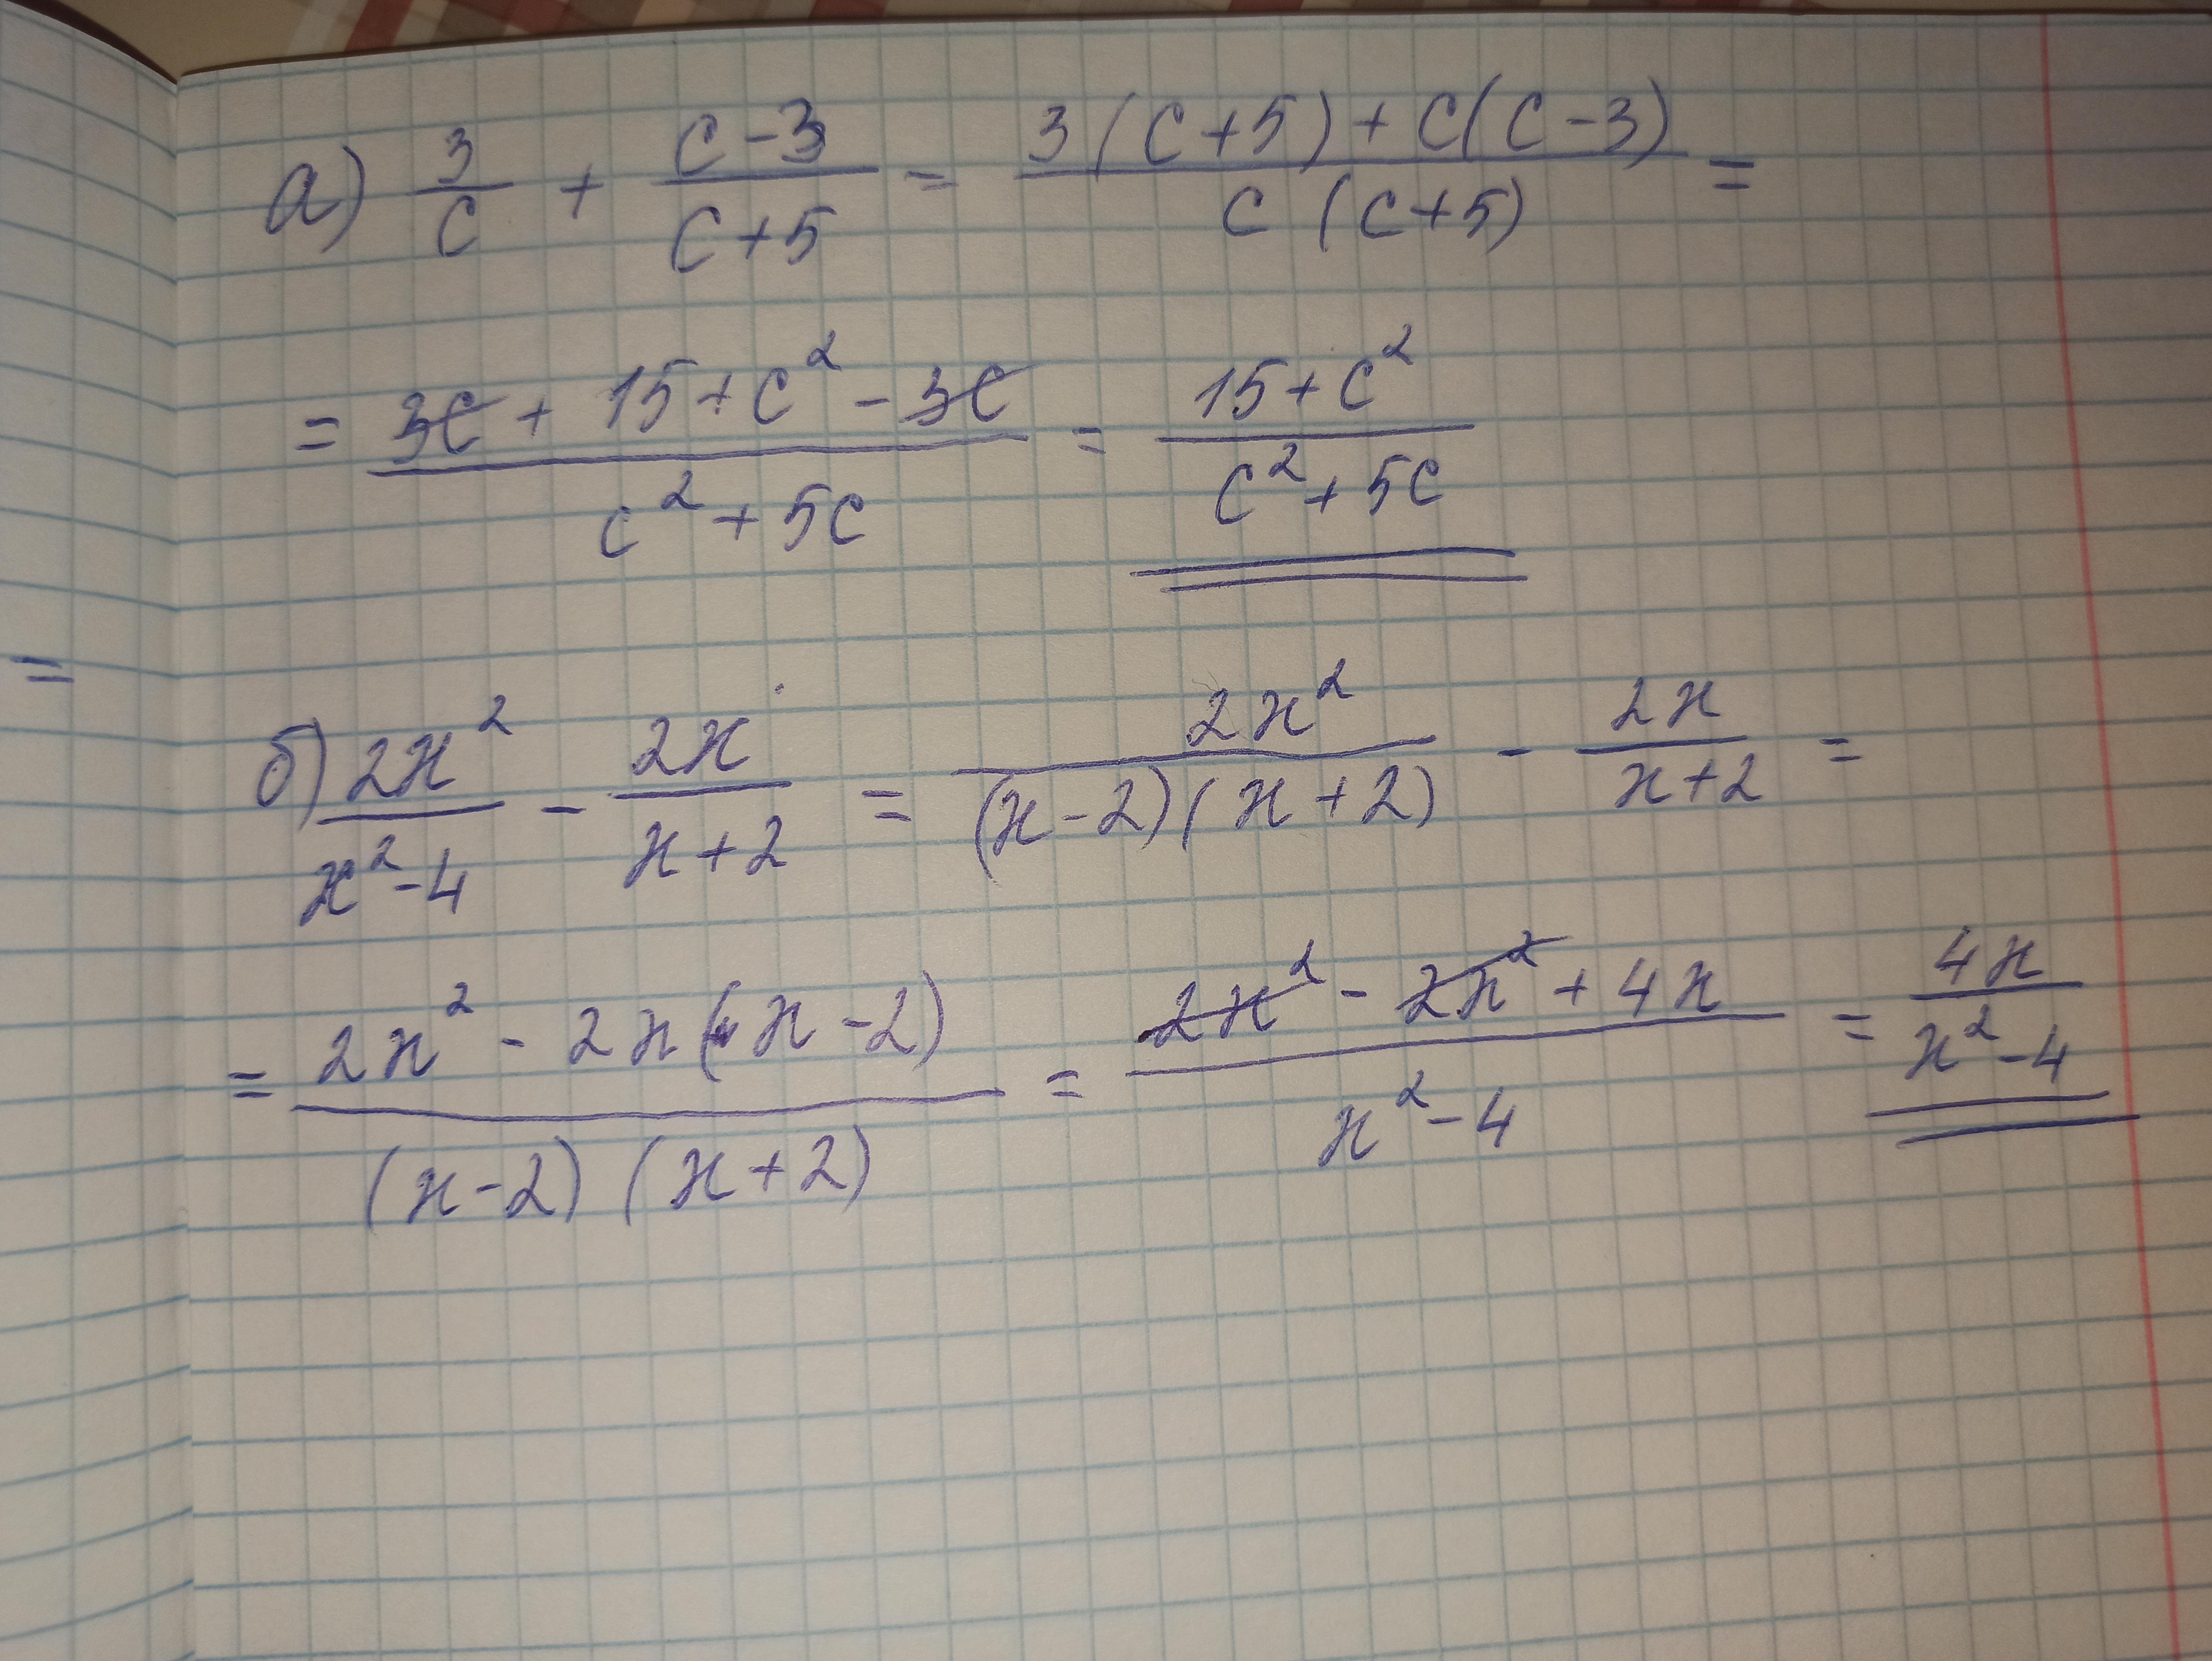 а) 3/c + (c-3)/(c+5) = (3(c+5)+c(c-3))/(c(c+5)) =
= (3c+15+c²-3c)/(c²+5c) = (15+c²)/(c²+5c)
=
б) 2x²/(x²-4) - 2x/(x+2) = 2x²/((x-2)(x+2)) - 2x/(x+2) =
= (2x²-2x(x-2))/((x-2)(x+2)) = (2x²-2x²+4x)/(x²-4) = 4x/(x²-4)